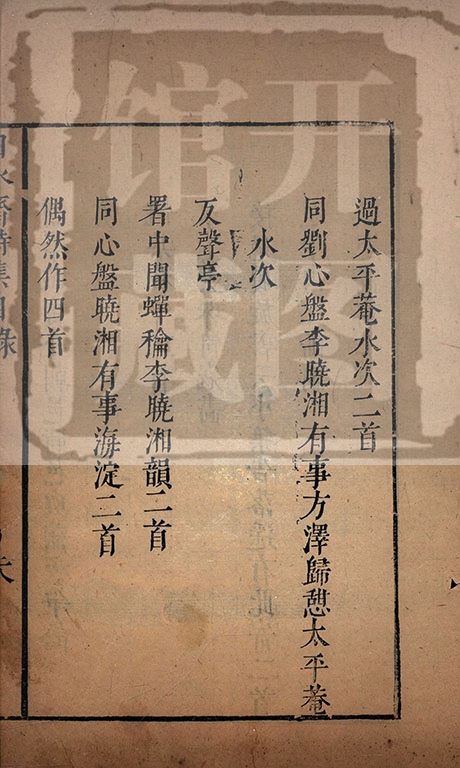 過太平菴水次二首
同劉心盤李曉湘有事方澤歸憩太平菴
水次
友聲亭
署中聞蟬和李曉湘韻二首
同心盤曉湘有事海淀二首
偶然作四首
詩集目錄
开图馆藏